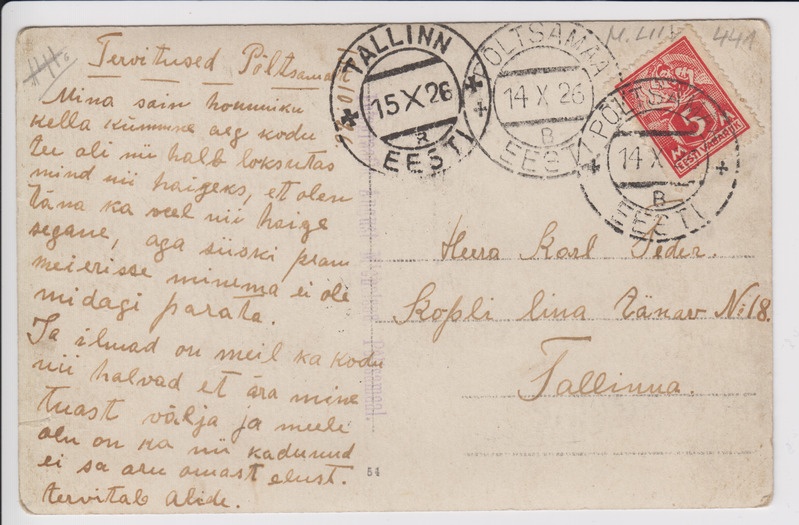 Tervitused Põltsamaalt
Mina sain hommiku
kella kümmne aeg kodu
tee oli nii halb loksutas
mind nii haigeks, et olen
täna ka veel nii haige
segane, aga siiski pean
meierisse minema ei ole
midagi parata.
Ja ilmad on meil ka kodu
nii halvad et ära mine
tuast välja ja meele
olu on ka nii kadunud
ei sa aru omast elust.
tervitab Alide.
TALLINN
15 X 26
EESTI
PÕLTSAMAA
14 X 26
B
EESTI
PÕLTSAMAA
14 X
B
EESTI
5 M
EESTI VABARIIK
441
Herra Karl Seder.
Kopli lina tänav № 18.
Tallinna.
54